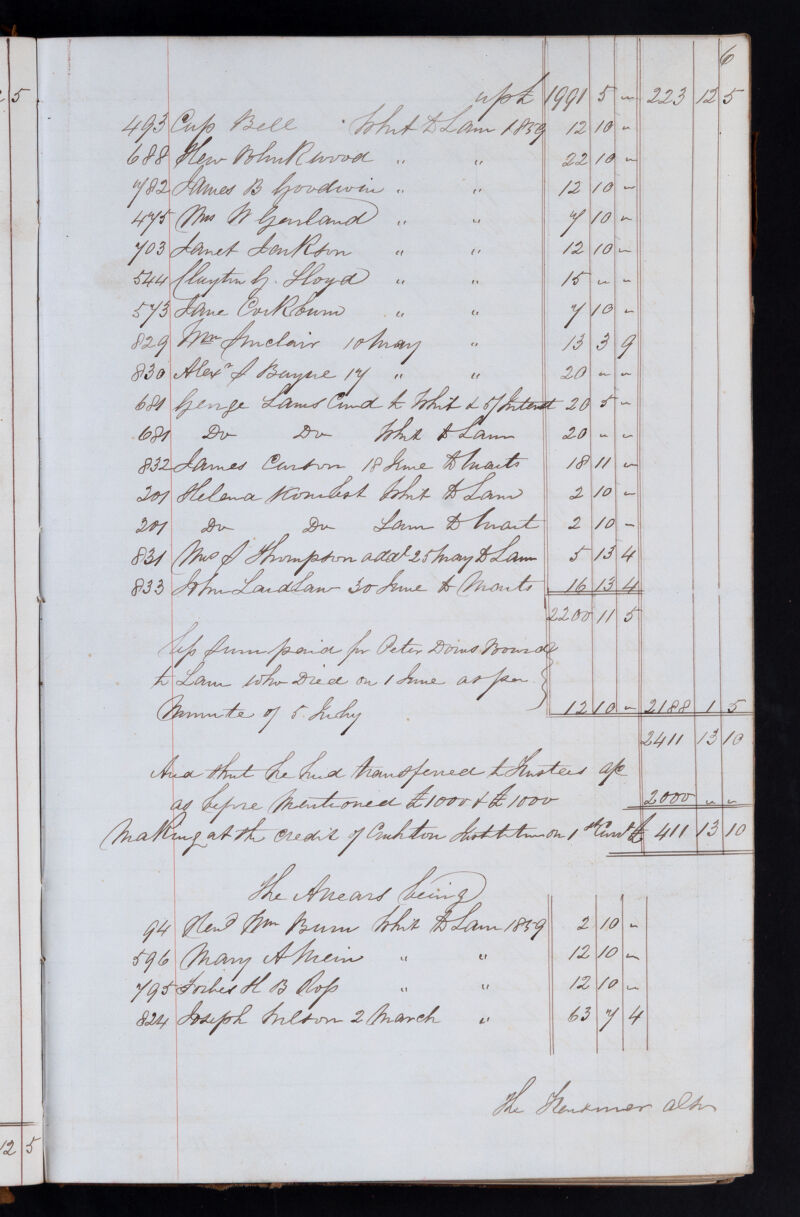 6
5
1991 5 " 223 12 5
493 Cap Bell Whit to Lam 1859 12 10 "
688 " " 22 10 "
782 James B Goodwin " " 12 10 "
475 Mrs W " " 7 10 "
703 Janet Jackson " " 12 10 "
544 Clayton G. Lloyd " " 15 " "
573 Jane Cockburn " " 7 10 "
829 Wm Sinclair 10 May " 13 3 9
830 Alexr J Bayne 17 " " 20 " "
681 George Laws to Whit & of Interest 20 5 "
681 Do Do Whit to Lam 20 " "
832 James Carson 18 June to Marts 18 11 "
201 Helena Whit to Lam 2 10 "
201 Do Do Lam to Mart 2 10 "
831 Mrs J Thompson addl 25 May to Lam 5 13 4
833 John Laidlaw 30 June to Marts 16 13 4
2200 11 5
sum paid for Peter
to Lam who Died on 1 June as per
Minute of 5 July 12 10 " 2188 1 5
2411 13 10
And that he had transferred to Trustees a/c
as before mentioned £1000 & £1000 2000 " "
Making at the credit of Institution 1st £ 411 13 10
The Arrears being
94 Revd Wm Burn Whit to Lam 1859 2 10 "
596 Mary A Mein " " 12 10 "
795 Forbes H B Ross " " 12 10 "
824 Joseph Wilson 2 March " 63 7 4
The Treasurer also
12 5